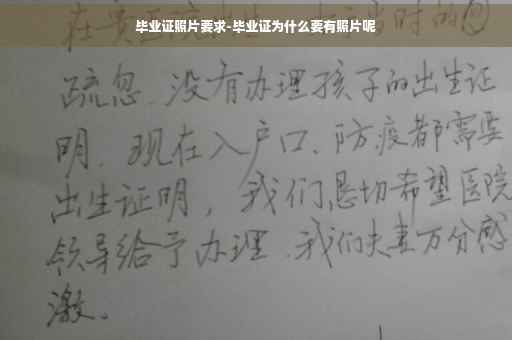 毕业证照片要求-毕业证为什么要有照片呢
疏忽、没有办理孩子的出生证
明、现在入户口、防疫都需要
出生证明，我们恳切希望医院
领导给予办理、我们夫妻万分感
激。